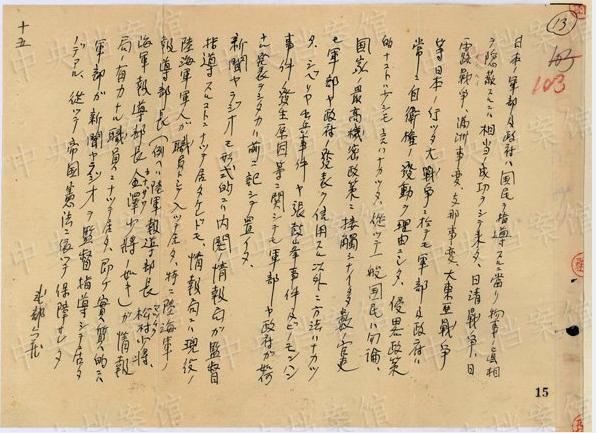 日本ノ軍部及政府ハ国民ヲ指導スルニ當リ物事ノ真相
ヲ隠蔽スルニハ相当ノ成功ヲシテ来タ、日清戦争、日
露戦争、満洲事変、支那事変、大東亜戦争
等日本ノ行ッタ大戦争ニ於テモ軍部及政府ハ
常ニ自衛権ノ発動ヲ理由トシタ、侵畧政策
国家ノ最高機密政策ニ接触シナイ多数ノ官吏
モ軍部ヤ政府ノ発表ヲ信用スル以外ニ方法ハナカッ
タ、シベリヤ出兵事件ヤ張鼓峯事件及ビノモンハン
事件ノ発生原因等ニ関シテモ軍部ヤ政府ガ如何
ナル発表ヲシタカハ前ニ記シテ置イタ、
新聞ヤラジオモ形式的ニハ内閣ノ情報局ガ監督
指導スルコトニナッテ居タケレドモ、情報局ニハ現役ノ
陸海軍軍人ガ職員トシテ入ッテ居タ、特ニ陸海軍ノ
報導部長(例ヘバ陸軍報導部長 松村少将、
海軍報導部長 少将ノ如キ)ガ情報
局ノ有力ナル職員ニナッテ居タ、即チ實質的ニハ
軍部ガ新聞ヤラジオヲ監督指導シテ居タ
ノデアル、従ッテ帝国憲法ニ依ッテ保障サレタ
十五
13
103
15
中央档案馆